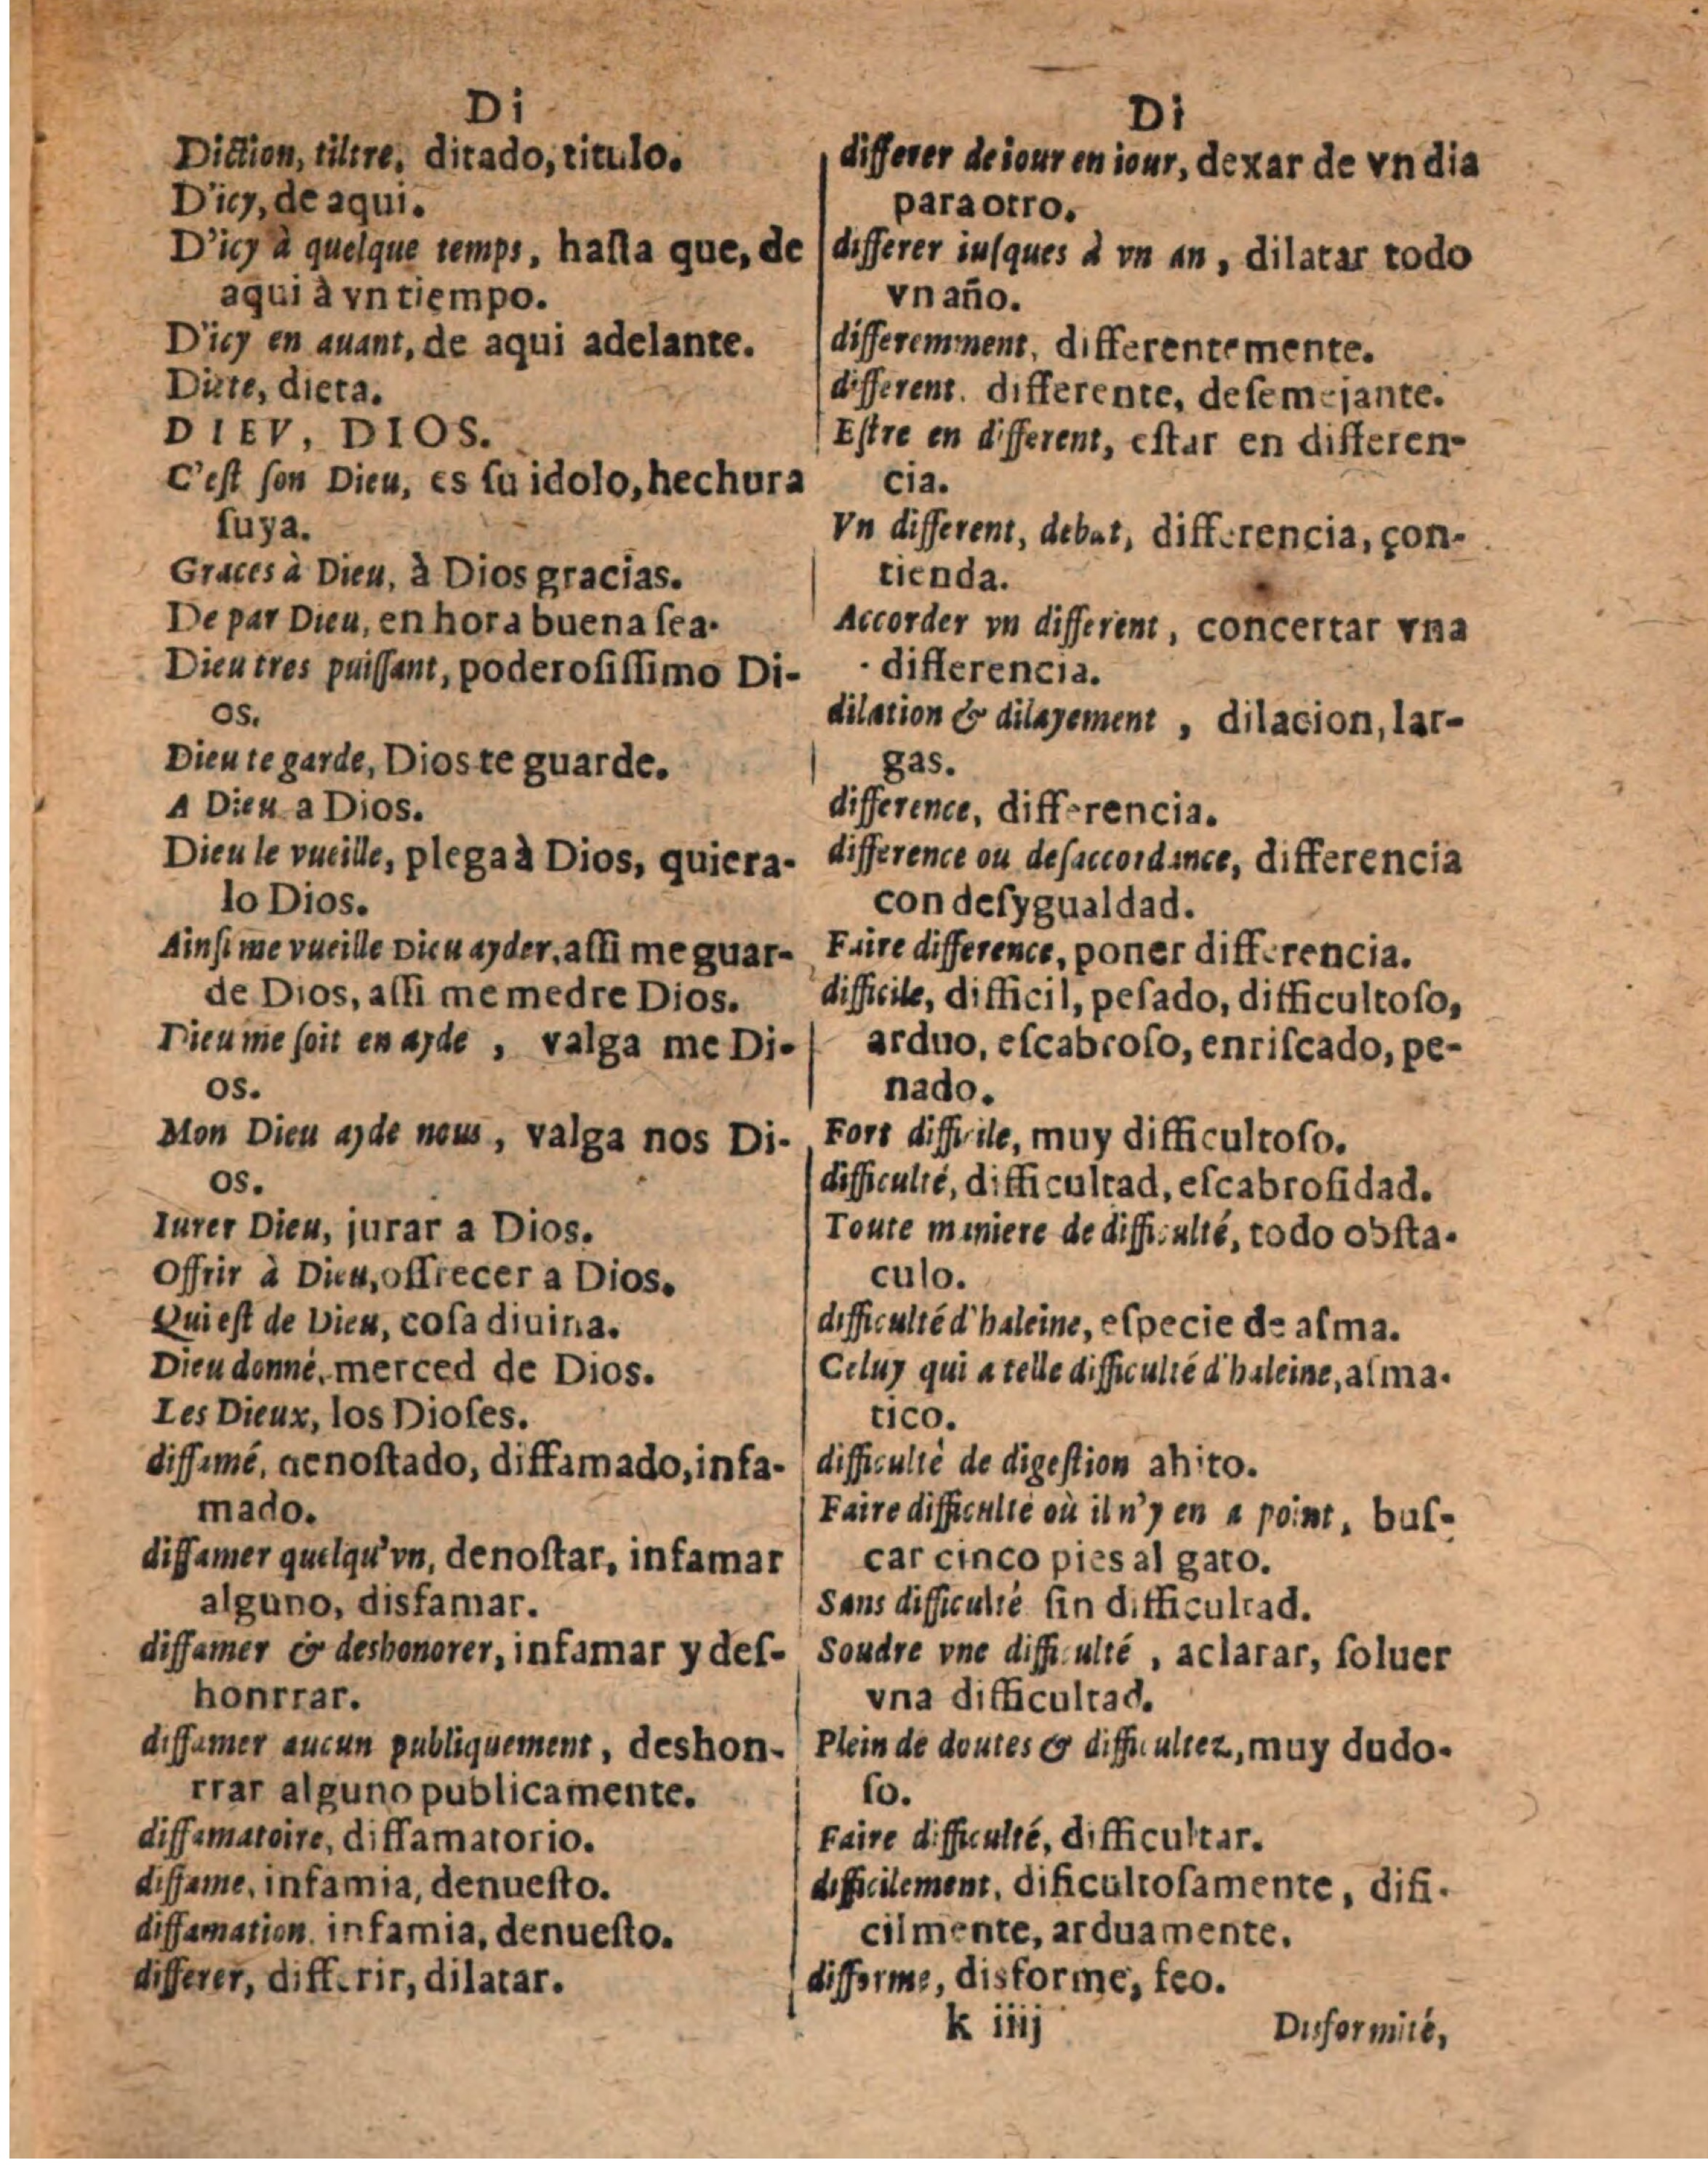 Di
Diction, tiltre, ditado, titulo.
D'icy, de aqui.
D'icy à quelque temps, haſta que, de
aqui à vn tiempo.
D'icy en auant, de aqui adelante.
Diete, dieta.
DIEV, DIOS.
C'eſt ſon Dieu, es ſu idolo, hechura
ſuya.
Graces à Dieu, à Dios gracias.
De par Dieu, en hora buena ſea.
Dieu tres puiſſant, poderoſiſſimo Di-
os.
Dieu te garde, Dios te guarde.
A Dieu a Dios.
Dieu le vueille, plega à Dios, quiera-
lo Dios.
Ainſi me vueille Dieu ayder, aſſi me guar-
de Dios, aſſi me medre Dios.
Dieu me ſoit en ayde, valga me Di-
os.
Mon Dieu ayde nous, valga nos Di-
os.
Iurer Dieu, jurar a Dios.
Offrir à Dieu, offrecer a Dios.
Qui eſt de Dieu, coſa diuina.
Dieu donné, merced de Dios.
Les Dieux, los Dioſes.
diffamé, denoſtado, diffamado, infa-
mado.
diffamer quelqu'vn, denoſtar, infamar
alguno, disfamar.
diffamer & deshonorer, infamar y deſ-
honrrar.
diffamer aucun publiquement, deshon-
rrar alguno publicamente.
diffamatoire, diffamatorio.
diffame, infamia, denueſto.
diffamation. infamia, denueſto.
differer, differir, dilatar.
Di
differer de iour en iour, dexar de vn dia
para otro.
differer iuſques à vn an, dilatar todo
vn año.
differemment, differentemente.
different. differente, deſemejante.
Eſtre en different, eſtar en differen-
cia.
Vn different, debat, differencia, çon-
tienda.
Accorder vn different, concertar vna
differencia.
dilation & dilayement, dilacion, lar-
gas.
difference, differencia.
difference ou deſaccordance, differencia
con deſygualdad.
Faire difference, poner differencia.
difficile, difficil, peſado, difficultoſo,
arduo, eſcabroſo, enriſcado, pe-
nado.
Fort difficile, muy difficultoſo.
difficulté, difficultad, eſcabroſidad.
Toute maniere de difficulté, todo obſta-
culo.
difficulté d'haleine, eſpecie de aſma.
Celuy qui a telle difficulté d'haleine, aſma-
tico.
difficulté de digeſtion ahito.
Faire difficulté où il n'y en a point, buſ-
car cinco pies al gato.
Sans difficulté ſin difficultad.
Soudre vne difficulté, aclarar, ſoluer
vna difficultad.
Plein de doutes & difficultez, muy dudo-
ſo.
Faire difficulté, difficultar.
difficilement, dificultoſamente, difi-
cilmente, arduamente.
difforme, disforme, feo.
k iiij
Difformité,